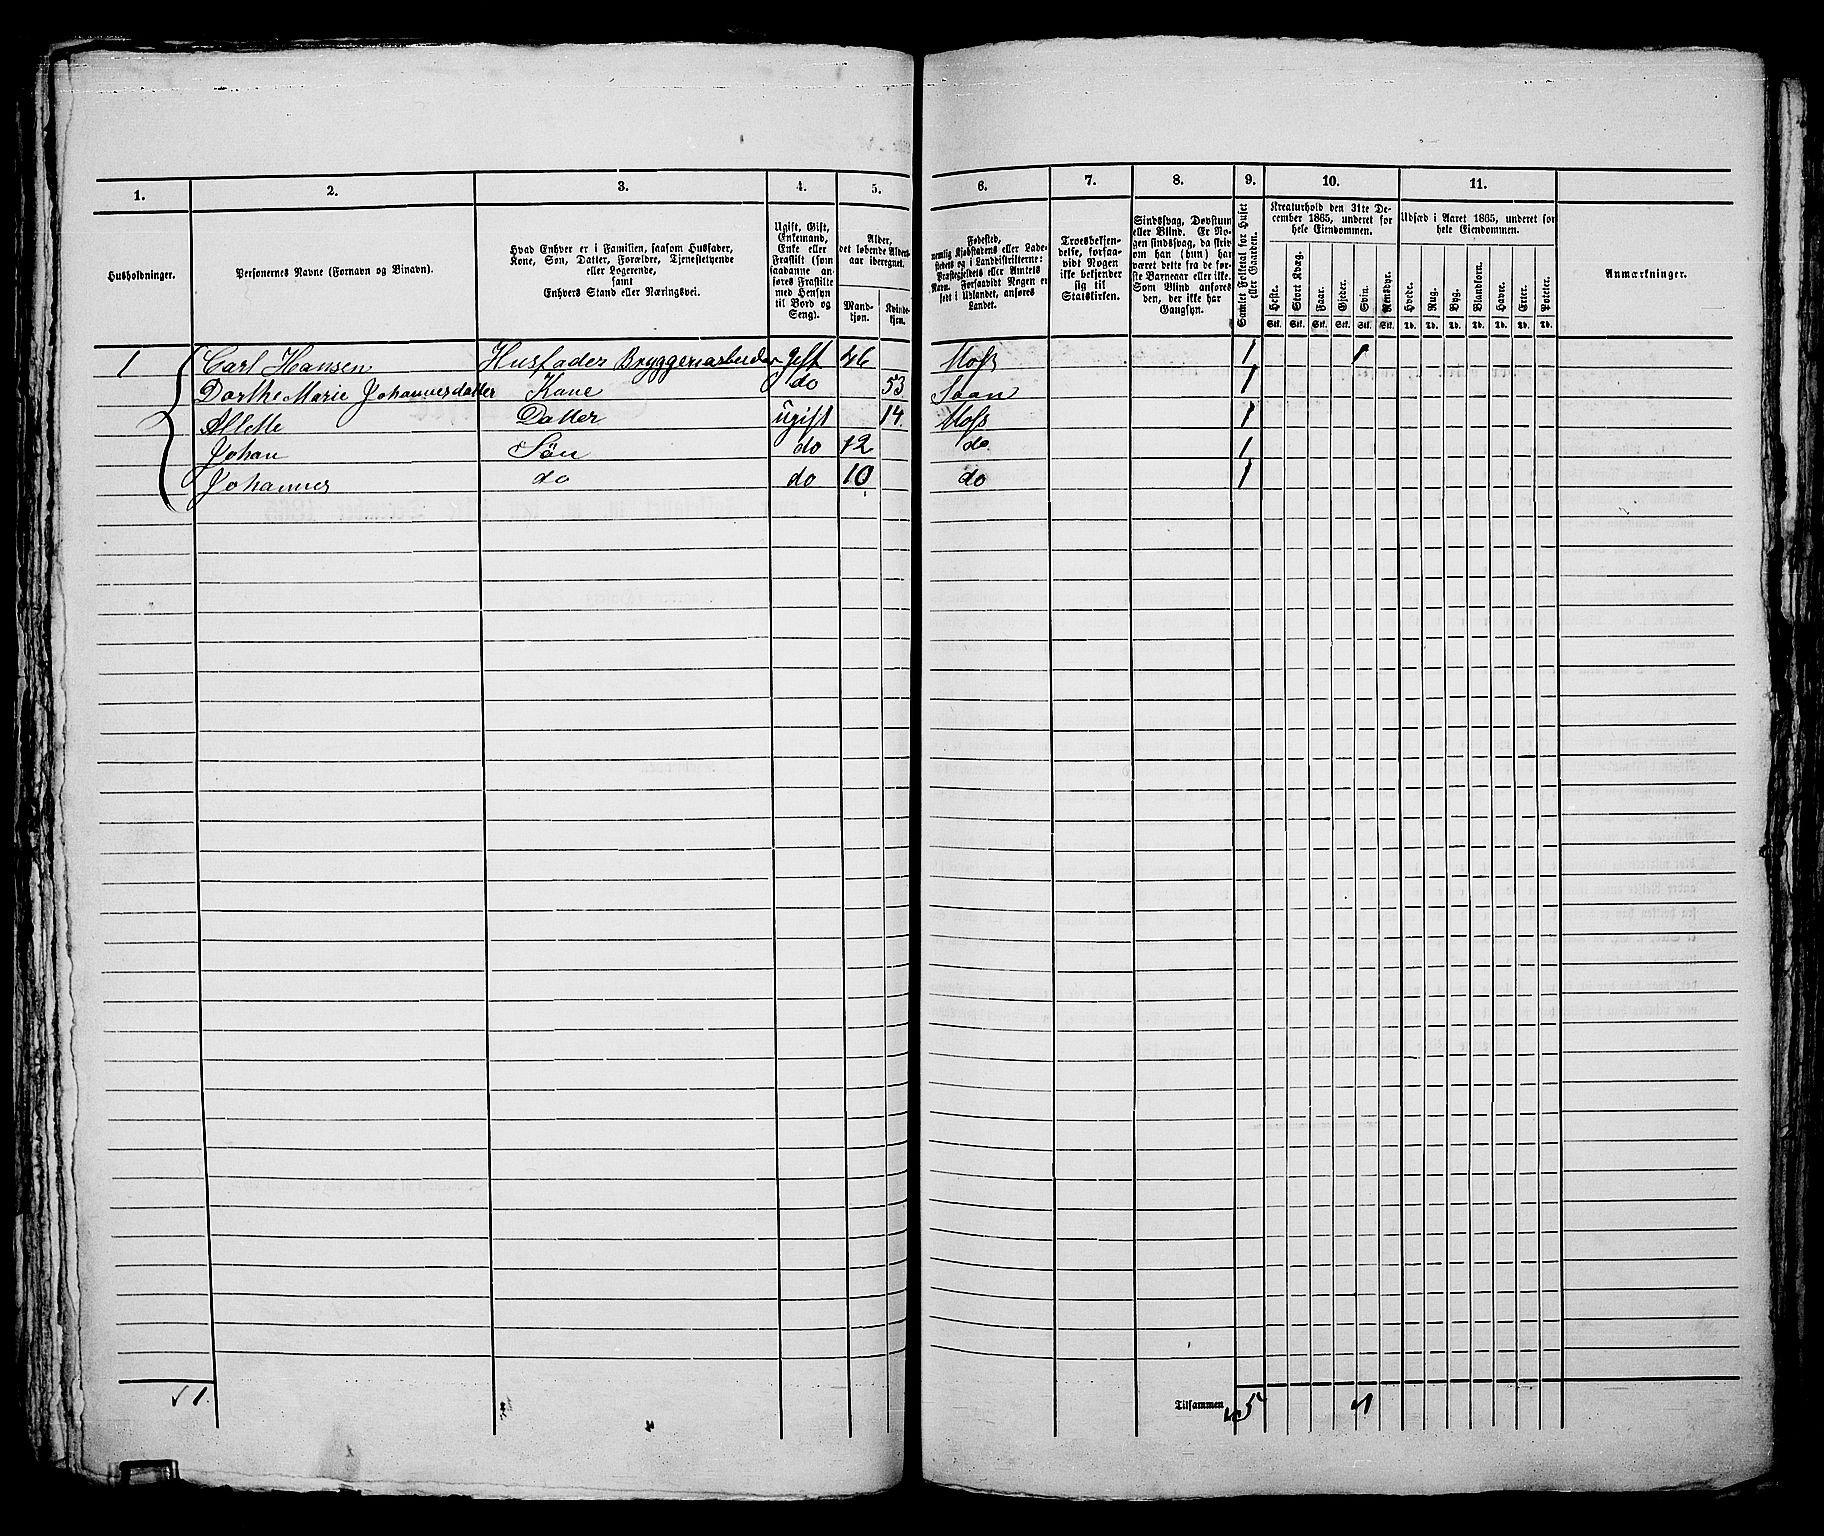 1. 2. 3. 4. 5. 6. 7. 8. 9. 10. 11.
Husholdninger.
Personernes Navne (Fornavn og Binavn).
Hvad Enhver er i Familien, saasom Husfader,
Kone, Søn, Datter, Forældre, Tjenestetyende
eller Logerende,
samt
Enhvers Stand eller Næringsvei.
Ugift, Gift,
Enkemand,
Enke eller
Fraskilt (som
saadanne an-
føres Fraskilte
med Hensyn
til Bord og
Seng).
Alder,
det løbende Alders-
aar iberegnet.
Mand-
kjøn.
Kvinde-
kjøn.
Fødested,
nemlig Kjøbstadens eller Lade-
stedets og i Landdistrikterne:
Præstegjeldets eller Amtets
Navn. Forsaavidt Nogen er
født i Udlandet, anføres
Landet.
Troesbekjen-
delse, forsaa-
vidt Nogen
ikke bekjender
sig til
Statskirken.
Sindssvag, Døvstum
eller Blind. Er No-
gen sindssvag, da skriv
om han (hun) har
været dette fra de før-
ste Barneaar eller ikke.
Som Blind anføres
den, der ikke har
Gangsyn.
Samlet Folketal for Huset
eller Gaarden.
Kreaturhold den 31te De-
cember 1865, underet for
hele Eiendommen.
Heste. Stort Kvæg. Faar. Gjeder. Svin. Rensdyr.
Stk. Stk. Stk. Stk. Stk. Stk.
Udsæd i Aaret 1865, underet for
hele Eiendommen.
Hvede. Rug. Byg. Blandkorn. Havre. Erter. Poteter.
Td. Td. Td. Td. Td. Td. Td.
Anmærkninger.
1 Carl Hansen Husfader Bryggeriarbeider gift 46 Moss 1 1
Dorthe Marie Johannesdatter Kone do 53 Saan 1
Allette Datter ugift 14 Moss 1
Johan Søn do 12 do 1
Johannes do do 10 do 1
1.
Tilsammen 5 1